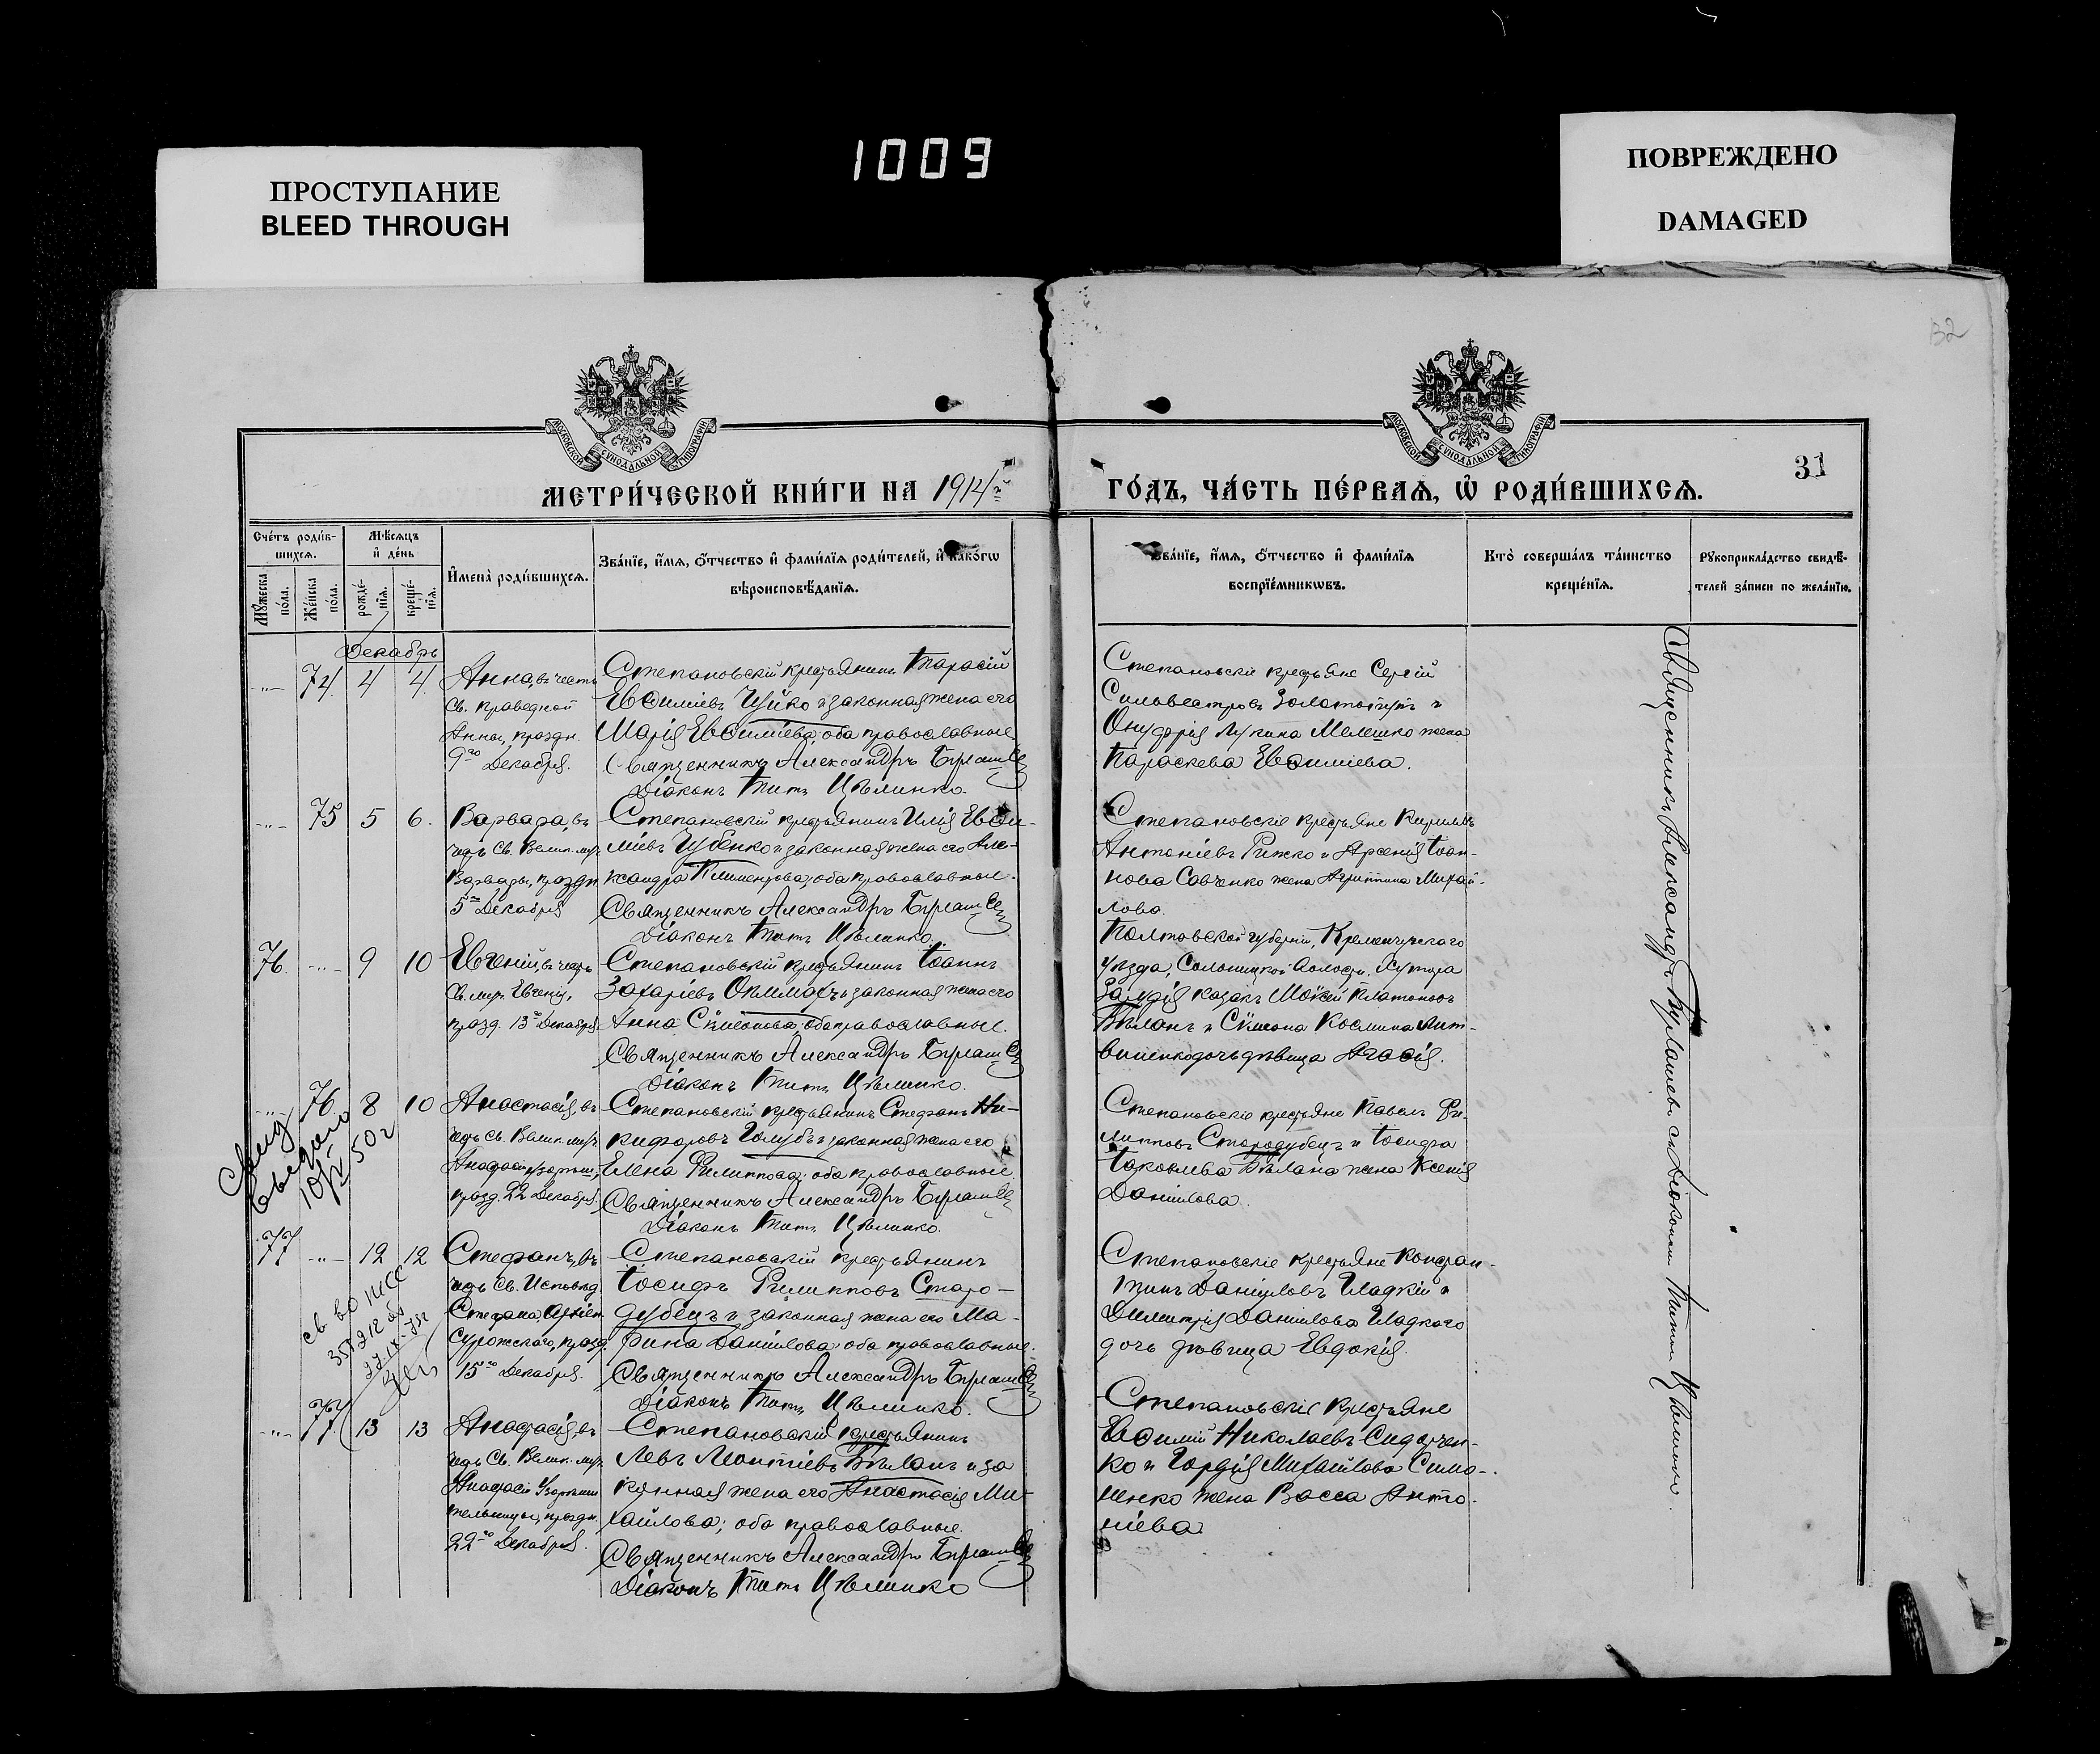 1009
ПРОСТУПАНИЕ
BLEED THROUGH
ПОВРЕЖДЕНО
DAMAGED
32
МОСКОВСКОЙ СѴНОДАЛЬНОЙ ТИПОГРАФІИ
МОСКОВСКОЙ СѴНОДАЛЬНОЙ ТИПОГРАФІИ
31
МЕТРИ́ЧЕСКОЙ КНИ́ГИ НА 1914й
ГО́ДЪ, ЧА́СТЬ ПЕ́РВАѦ, Ѡ҆ РОДИ́ВШИХСѦ.
Сче́тъ роди́в-
шихсѧ.
Мꙋ́жеска по́ла.
Же́нска по́ла.
Мѣ́сѧцъ
и҆ де́нь
рожде́-
нїѧ.
креще́-
нїѧ.
И҆мена̀ роди́вшихсѧ.
Зва́нїе, и҆́мѧ, ѻ҆́тчество и҆ фами́лїѧ роди́телей, и҆ како́гѡ
вѣроисповѣ́данїѧ.
Зва́нїе, и҆́мѧ, ѻ҆́тчество и҆ фами́лїѧ
воспрїе́мникѡвъ.
Кто̀ соверша́лъ та́инство
креще́нїѧ.
Рꙋкоприкла́дство свидѣ́-
телей за́писи по жела́нїю.
Декабрь
-"- 74 4 4
Анна, въ честь
Св. праведной
Анны, праздн.
9го Декабря.
Степановскій крестьянинъ Тарасій
Евѳиміевъ Чуйко и законная жена его
Марія Евѳиміева, оба православные.
Священникъ Александръ
Діаконъ Титъ Цѣлинко.
Степановскіе крестьяне Сергій
Сильвестровъ и
Онуфрія Лукина Мелешко жена
Параскева Евѳиміева.
-"- 75 5 6.
Варвара, въ
честь Св. Велик. муч.
Варвары, праздн.
5го Декабря
Степановскій крестьянинъ Илія Евѳи-
міевъ Чубенко и законная жена его Але-
ксандра Климентова, оба православные.
Священникъ Александръ
Діаконъ Титъ Цѣлинко.
Степановскіе крестьяне Кириллъ
Антоніевъ Рижко и Арсенія Іоан-
нова Савченко жена Агриппина Михай-
лова.
76. -"- 9 10
Евгеній, въ честь
Св. муч. Евгенія,
празд. 13го Декабря.
Степановскій крестьянинъ Іоаннъ
Захаріевъ и законная жена его
Анна Сѵмеонова, оба православные.
Священникъ Александръ
Діаконъ Титъ Цѣлинко.
Полтавской губерніи, Кременчугскаго
уѣзда, Волости, Хутора
казакъ Мокій Платоновъ
Бѣланъ и Сѵмеона Космина Лит-
виненко дочь дѣвица Агаѳія.
-"- 76 8 10
Анастасія, въ
честь Св. Велик. муч.
Анастасіи
празд. 22 Декабря.
Степановскій крестьянинъ Стефанъ Ни-
кифоровъ Голубъ и законная жена его
Елена Филиппова; оба православные
Священникъ Александръ
Діаконъ Титъ Цѣлинко.
Степановскіе крестьяне Павелъ Фи-
липповъ Стародубецъ и Іосифа
Іаковлева Бѣлана жена Ксенія
Даніилова.
выдано
50 г
77 -"- 12 12
Стефанъ, въ
честь Св. Исповѣд.
Стефана, Архіеп.
Сурожскаго, празд.
15го Декабря.
Степановскій крестьянинъ
Іосифъ Филипповъ Старо-
дубецъ и законная жена его Ма-
рина Даніилова; оба православные.
Священникъ Александръ
Діаконъ Титъ Цѣлинко.
Степановскіе крестьяне Констан-
тинъ Даніиловъ Гладкій и
Димитрія Даніилова Гладкаго
дочь дѣвица Евдокія.
-"- 77 13 13
Анастасія, въ
честь Св. Велик. муч.
Анастасіи Узорѣши-
тельницы, праздн.
22го Декабря.
Степановскій крестьянинъ
Левъ Леонтіевъ Бѣланъ и за-
конная жена его Анастасія Ми-
хаилова; оба православные.
Священникъ Александръ
Діаконъ Титъ Цѣлинко
Степановскіе крестьяне
Евѳимій Николаевъ Сидорчен-
ко и Гордія Михаилова Симо-
ненко жена Васса Анто-
ніева
Священникъ Александръ съ діакономъ Титомъ Цѣлинко.